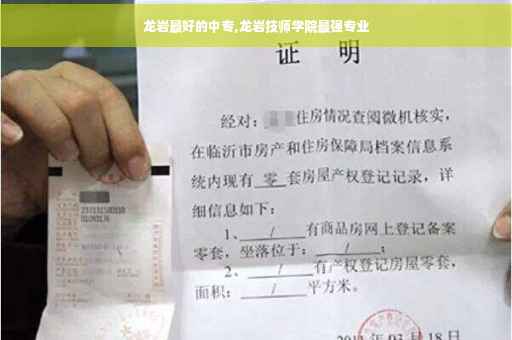 龙岩最好的中专,龙岩技师学院最强专业
证 明
经对: 住房情况查阅微机核实,
在临沂市房产和住房保障局档案信息系
统内现有 零 套房屋产权登记记录,详
细信息如下:
1、 / 有商品房网上登记备案
零套,坐落位于: / ;
2、 / 有产权登记房屋零套,
面积: / 平方米。
03 月 18 日